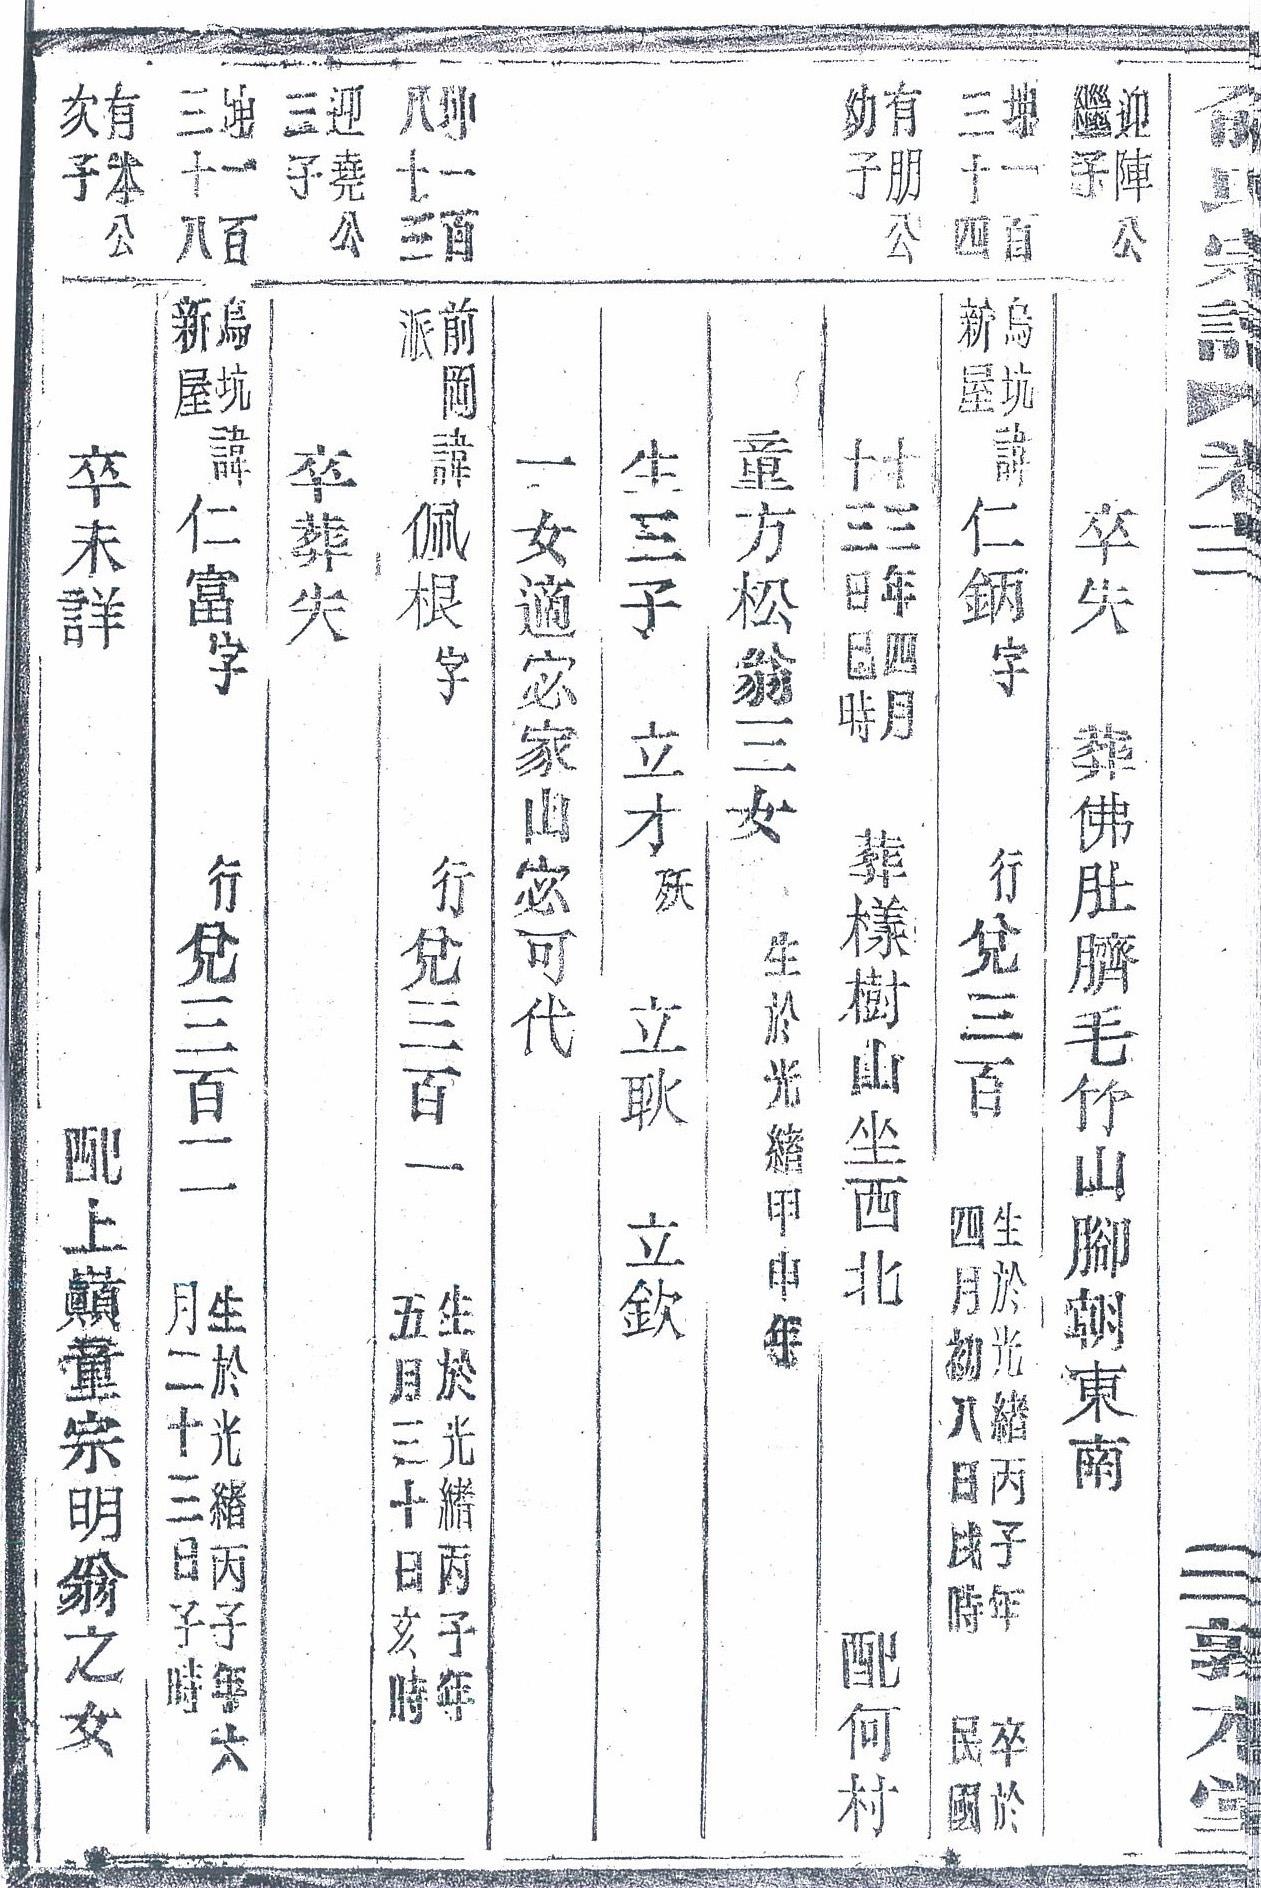 俞氏宗譜 卷 三 敦本堂
迎陣公繼子 卒失 葬佛肚臍毛竹山腳朝東南
坤一百三十四 烏坑新屋 諱仁鈵字 行兌三百 生於光緒丙子年四月初八日戌時 卒於民國
有朋公幼子 十三年四月十三日巳時 葬樣樹山坐西北 配何村
童方松翁三女 生於光緒甲申年
生三子 立才 殀 立耿 立欽
一女適宓家山宓可代
坤一百八十三 前岡派 諱佩根字 行兌三百一 生於光緒丙子年五月三十日亥時
迎堯公三子 卒葬失
坤一百三十八 烏坑新屋 諱仁富字 行兌三百二 生於光緒丙子年六月二十三日子時
有本公次子 卒未詳 配上巔童宗明翁之女